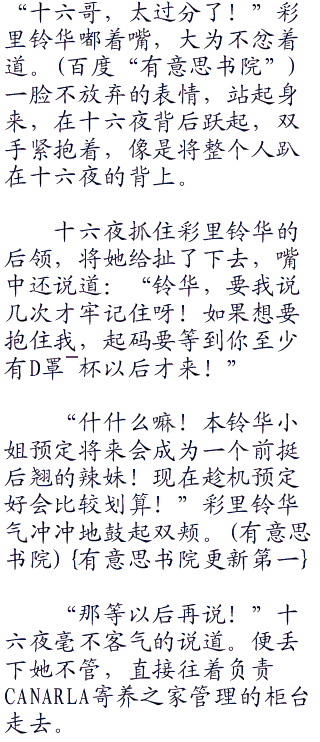 “十六哥，太过分了！”彩
里铃华嘟着嘴，大为不忿着
道。(百度“有意思书院”)
一脸不放弃的表情，站起身
来，在十六夜背后跃起，双
手紧抱着，像是将整个人趴
在十六夜的背上。
十六夜抓住彩里铃华的
后领，将她给扯了下去，嘴
中还说道：“铃华，要我说
几次才牢记住呀！如果想要
抱住我，起码要等到你至少
有D罩ˉ杯以后才来！”
“什什么嘛！本铃华小
姐预定将来会成为一个前挺
后翘的辣妹！现在趁机预定
好会比较划算！”彩里铃华
气冲冲地鼓起双颊。(有意思
书院) {有意思书院更新第一}
“那等以后再说！”十
六夜毫不客气的说道。便丢
下她不管，直接往着负责
CANARLA寄养之家管理的柜台
走去。